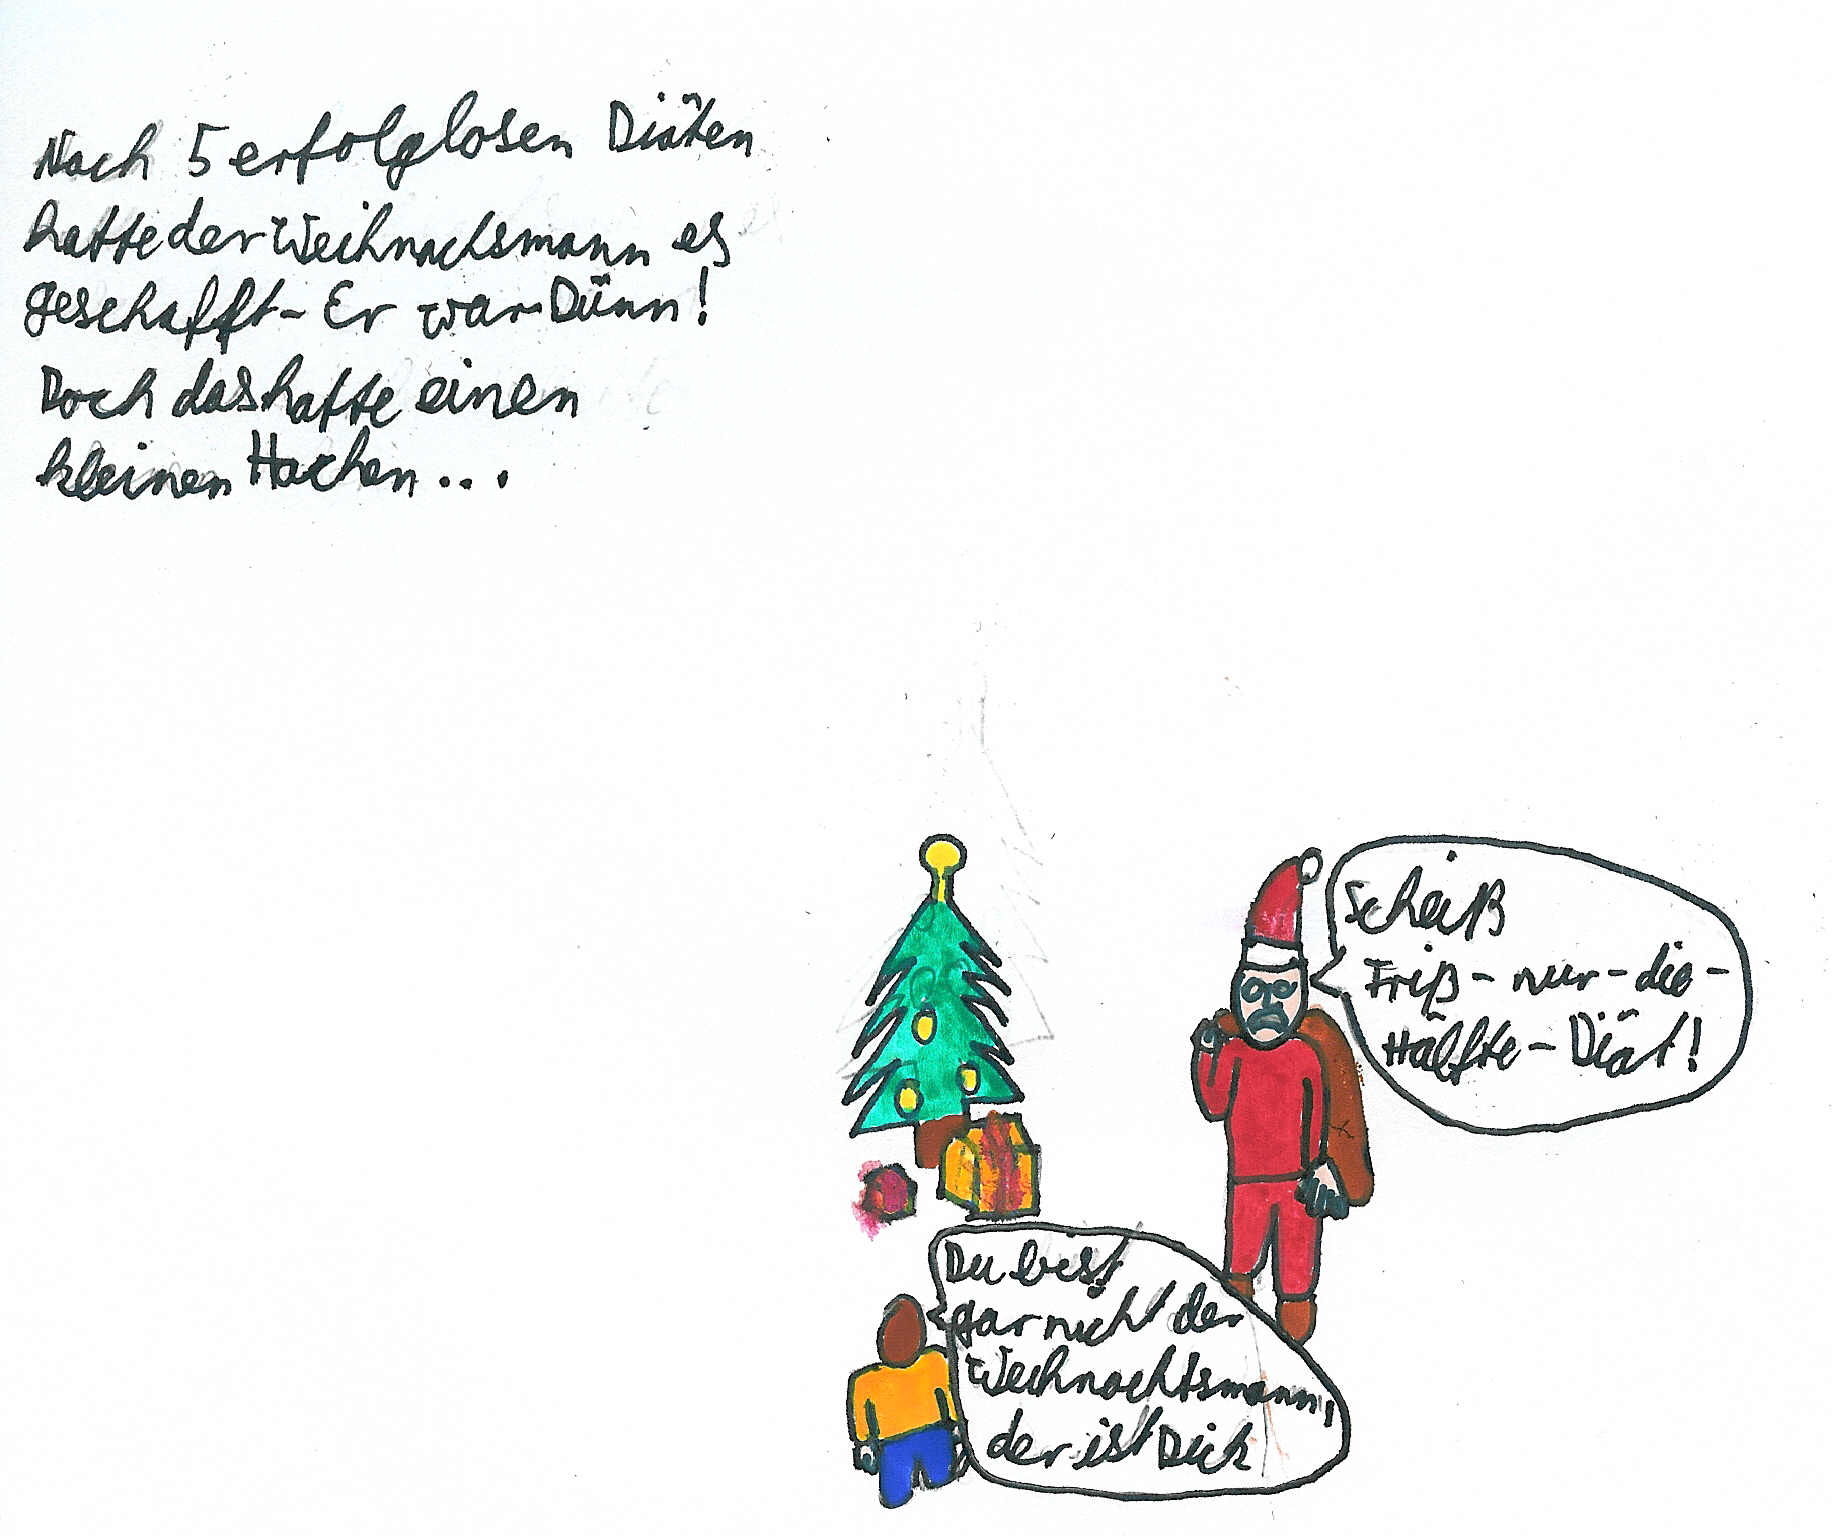 Nach 5 erfolglosen Diäten
hatte der Weihnachsmann es
geschafft - Er war Dünn!
Doch das hatte einen
kleinen Hacken...
Scheiß
Friß - nur - die -
Hälfte - Diät!
Du bist
gar nicht der
Weihnachtsmann,
der ist Dick